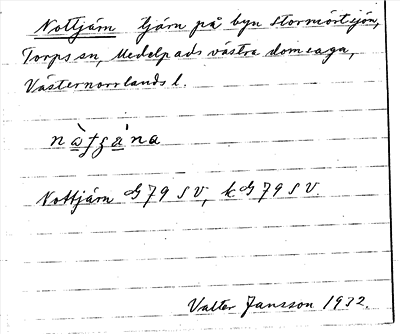 Nottjärn tjärn på byn Stormörtsjön,
Torps sn, Medelpads västra domsaga,
Västernorrlands l.
Nottjärn G 79 SV, k G 79 SV.
Valter Jansson 1932.